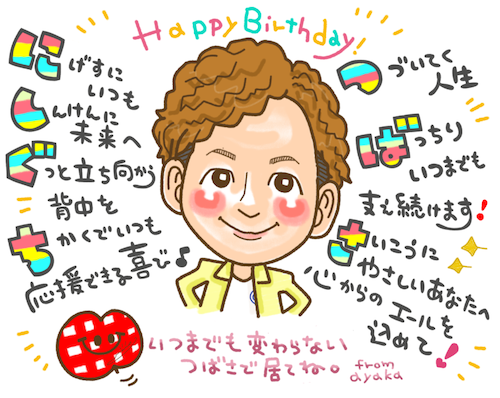 Happy Birthday!
にげずに
いつも
しんけんに
未来へ
ぐっと立ち向かう
背中を
ちかくでいつも
応援できる喜び♪
つづいてく
人生
ばっちり
いつまでも
支え続けます!
さいこうに
やさしいあなたへ
心からのエールを
込めて!
いつまでも変わらない
つばさで居てね。
from
ayaka